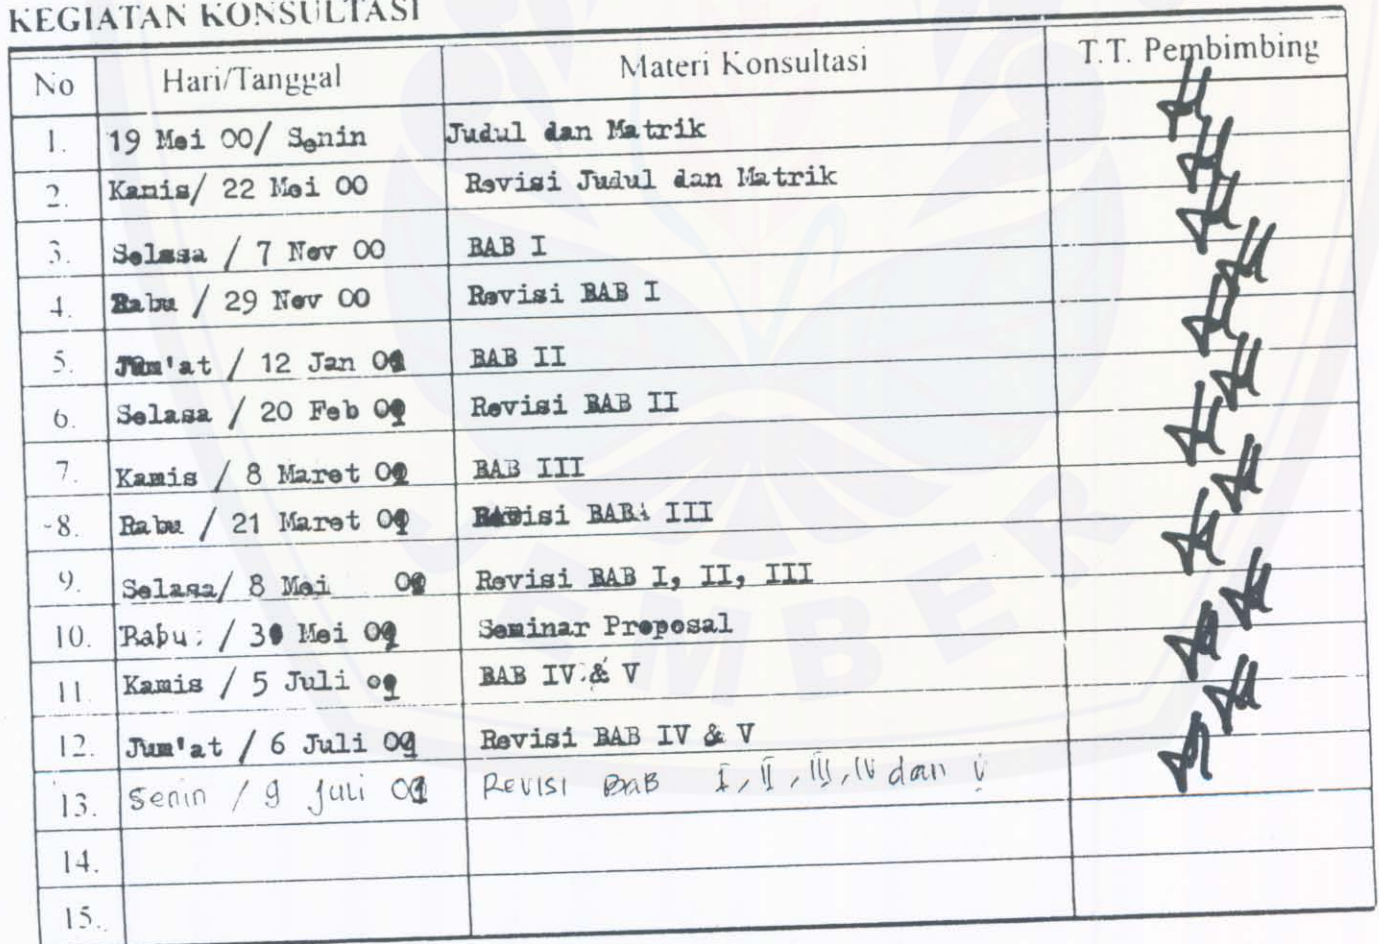 KEGIATAN KONSULTASI
No Hari/Tanggal Materi Konsultasi T.T. Pembimbing
1. 19 Mei 00/ Senin Judul dan Matrik
2. Kamis/ 22 Mei 00 Revisi Judul dan Matrik
3. Selasa / 7 Nov 00 BAB I
4. Rabu / 29 Nov 00 Revisi BAB I
5. Jum'at / 12 Jan 01 BAB II
6. Selasa / 20 Feb 01 Revisi BAB II
7. Kamis / 8 Maret 01 BAB III
8. Rabu / 21 Maret 01 Revisi BAB III
9. Selasa/ 8 Mei 01 Revisi BAB I, II, III
10. Rabu / 30 Mei 01 Seminar Proposal
11. Kamis / 5 Juli 01 BAB IV & V
12. Jum'at / 6 Juli 01 Revisi BAB IV & V
13. Senin / 9 Juli 01 Revisi BAB I, II, III, IV dan V
14.
15.
JEMBER